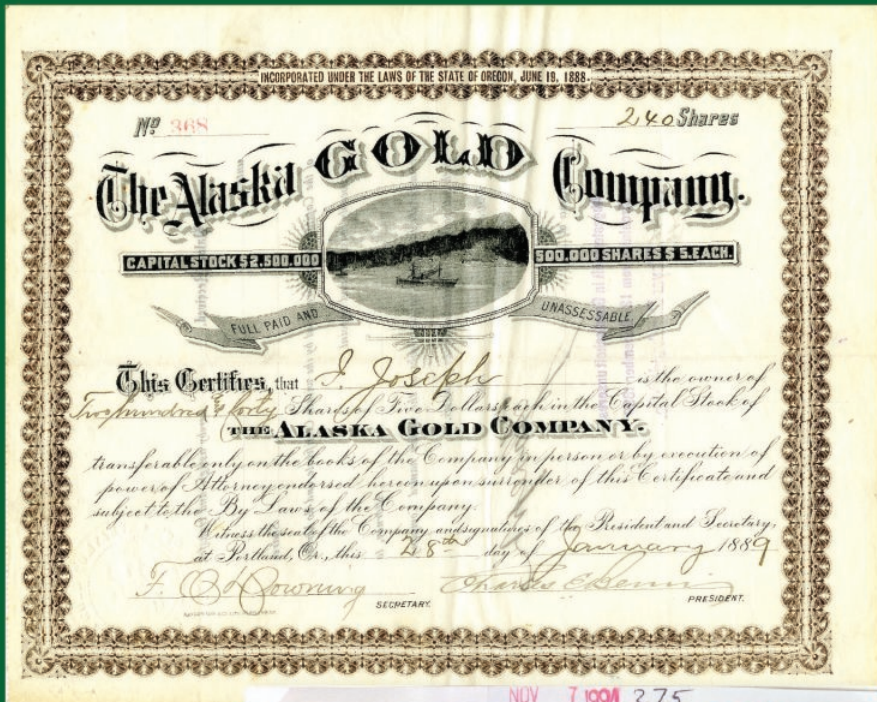 INCORPORATED UNDER THE LAWS OF THE STATE OF OREGON, JUNE 19, 1888.
No 368 240 Shares
The Alaska GOLD Company.
CAPITAL STOCK $2.500.000 500.000 SHARES $5. EACH.
FULL PAID AND UNASSESSABLE.
This Certifies, that I. Joseph is the owner of
Two hundred & forty Shares of Five Dollars each in the Capital Stock of
THE ALASKA GOLD COMPANY.
transferable only on the books of the Company in person or by execution of
power of Attorney endorsed hereon upon surrender of this Certificate and
subject to the By Laws of the Company.
Witness the seal of the Company and signatures of the President and Secretary,
at Portland, Or., this 28th day of January 1889
F. Downing Charles E.
SECRETARY. PRESIDENT.
NOV 7 1994 275